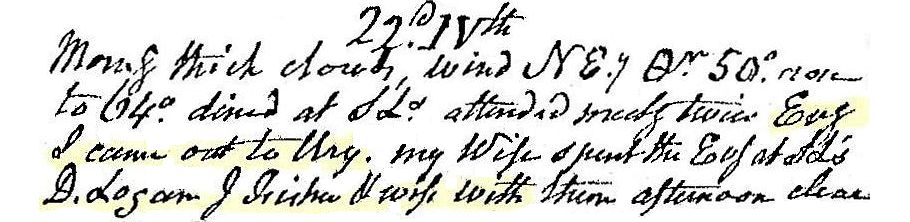 22.d IVth
Morng thick clouds, wind NE. 7 Or 50.o rose
to 64o dined at SLs attended meetg twice Evg
I came out to Ury. my Wife spent the Evg at SL's
D. Logan J Fisher & wife with them afternoon clear